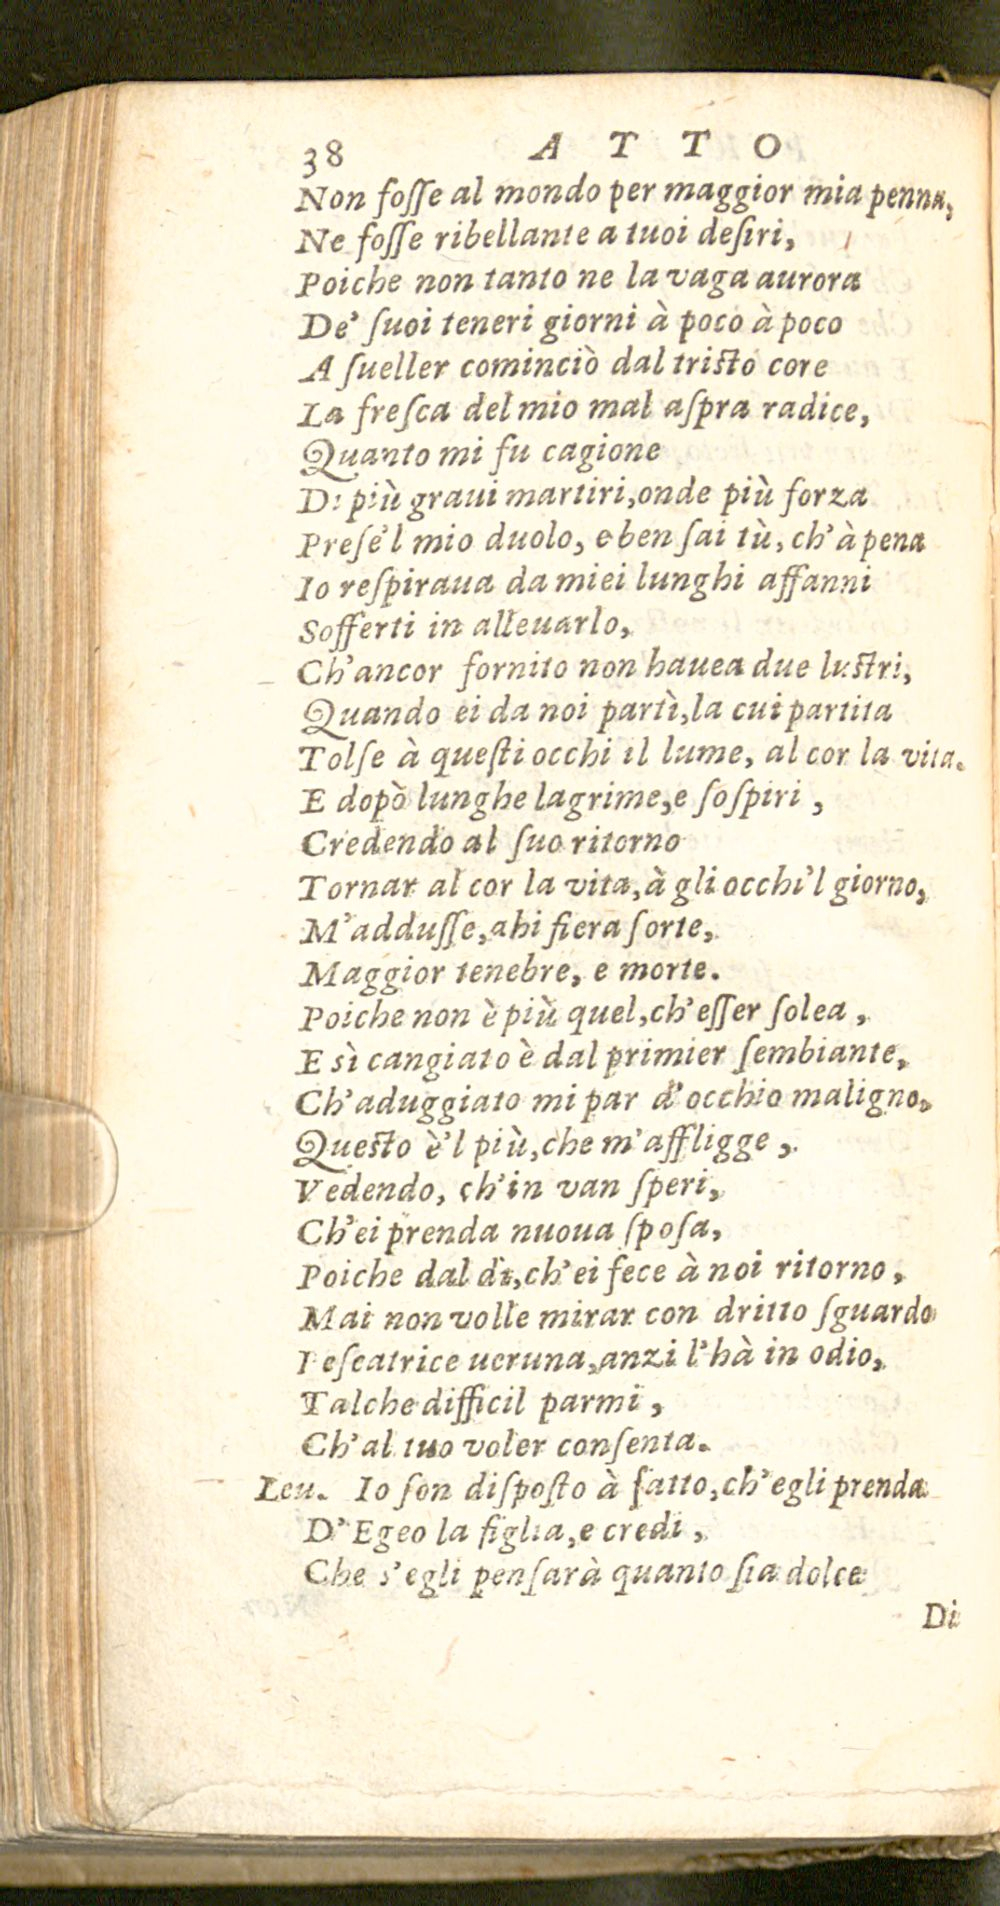 38 ATTO
Non foſſe al mondo per maggior mia penna,
Ne foſſe ribellante a tuoi deſiri,
Poiche non tanto ne la vaga aurora
De' ſuoi teneri giorni à poco à poco
A ſueller cominciò dal triſto core
La freſca del mio mal aſpra radice,
Quanto mi fu cagione
Di più graui martiri, onde più forza
Preſe'l mio duolo, e ben ſai tù, ch'à pena
Io reſpiraua da miei lunghi affanni
Sofferti in alleuarlo,
Ch'ancor fornito non hauea due luſtri,
Quando ei da noi partì, la cui partita
Tolſe à queſti occhi il lume, al cor la vita.
E dopò lunghe lagrime, e ſoſpiri,
Credendo al ſuo ritorno
Tornar al cor la vita, à gli occhi'l giorno,
M'adduſſe, ahi fiera ſorte,
Maggior tenebre, e morte.
Poiche non è più quel, ch'eſſer ſolea,
E sì cangiato è dal primier ſembiante,
Ch'aduggiato mi par d'occhio maligno.
Queſto è'l più, che m'affligge,
Vedendo, ch'in van ſperi,
Ch'ei prenda nuoua ſpoſa,
Poiche dal dì, ch'ei fece à noi ritorno,
Mai non volle mirar con dritto ſguardo
Peſcatrice ueruna, anzi l'hà in odio,
Talche difficil parmi,
Ch'al tuo voler conſenta.
Leu. Io ſon diſpoſto à fatto, ch'egli prenda
D'Egeo la figlia, e credi,
Che s'egli penſarà quanto ſia dolce
Di